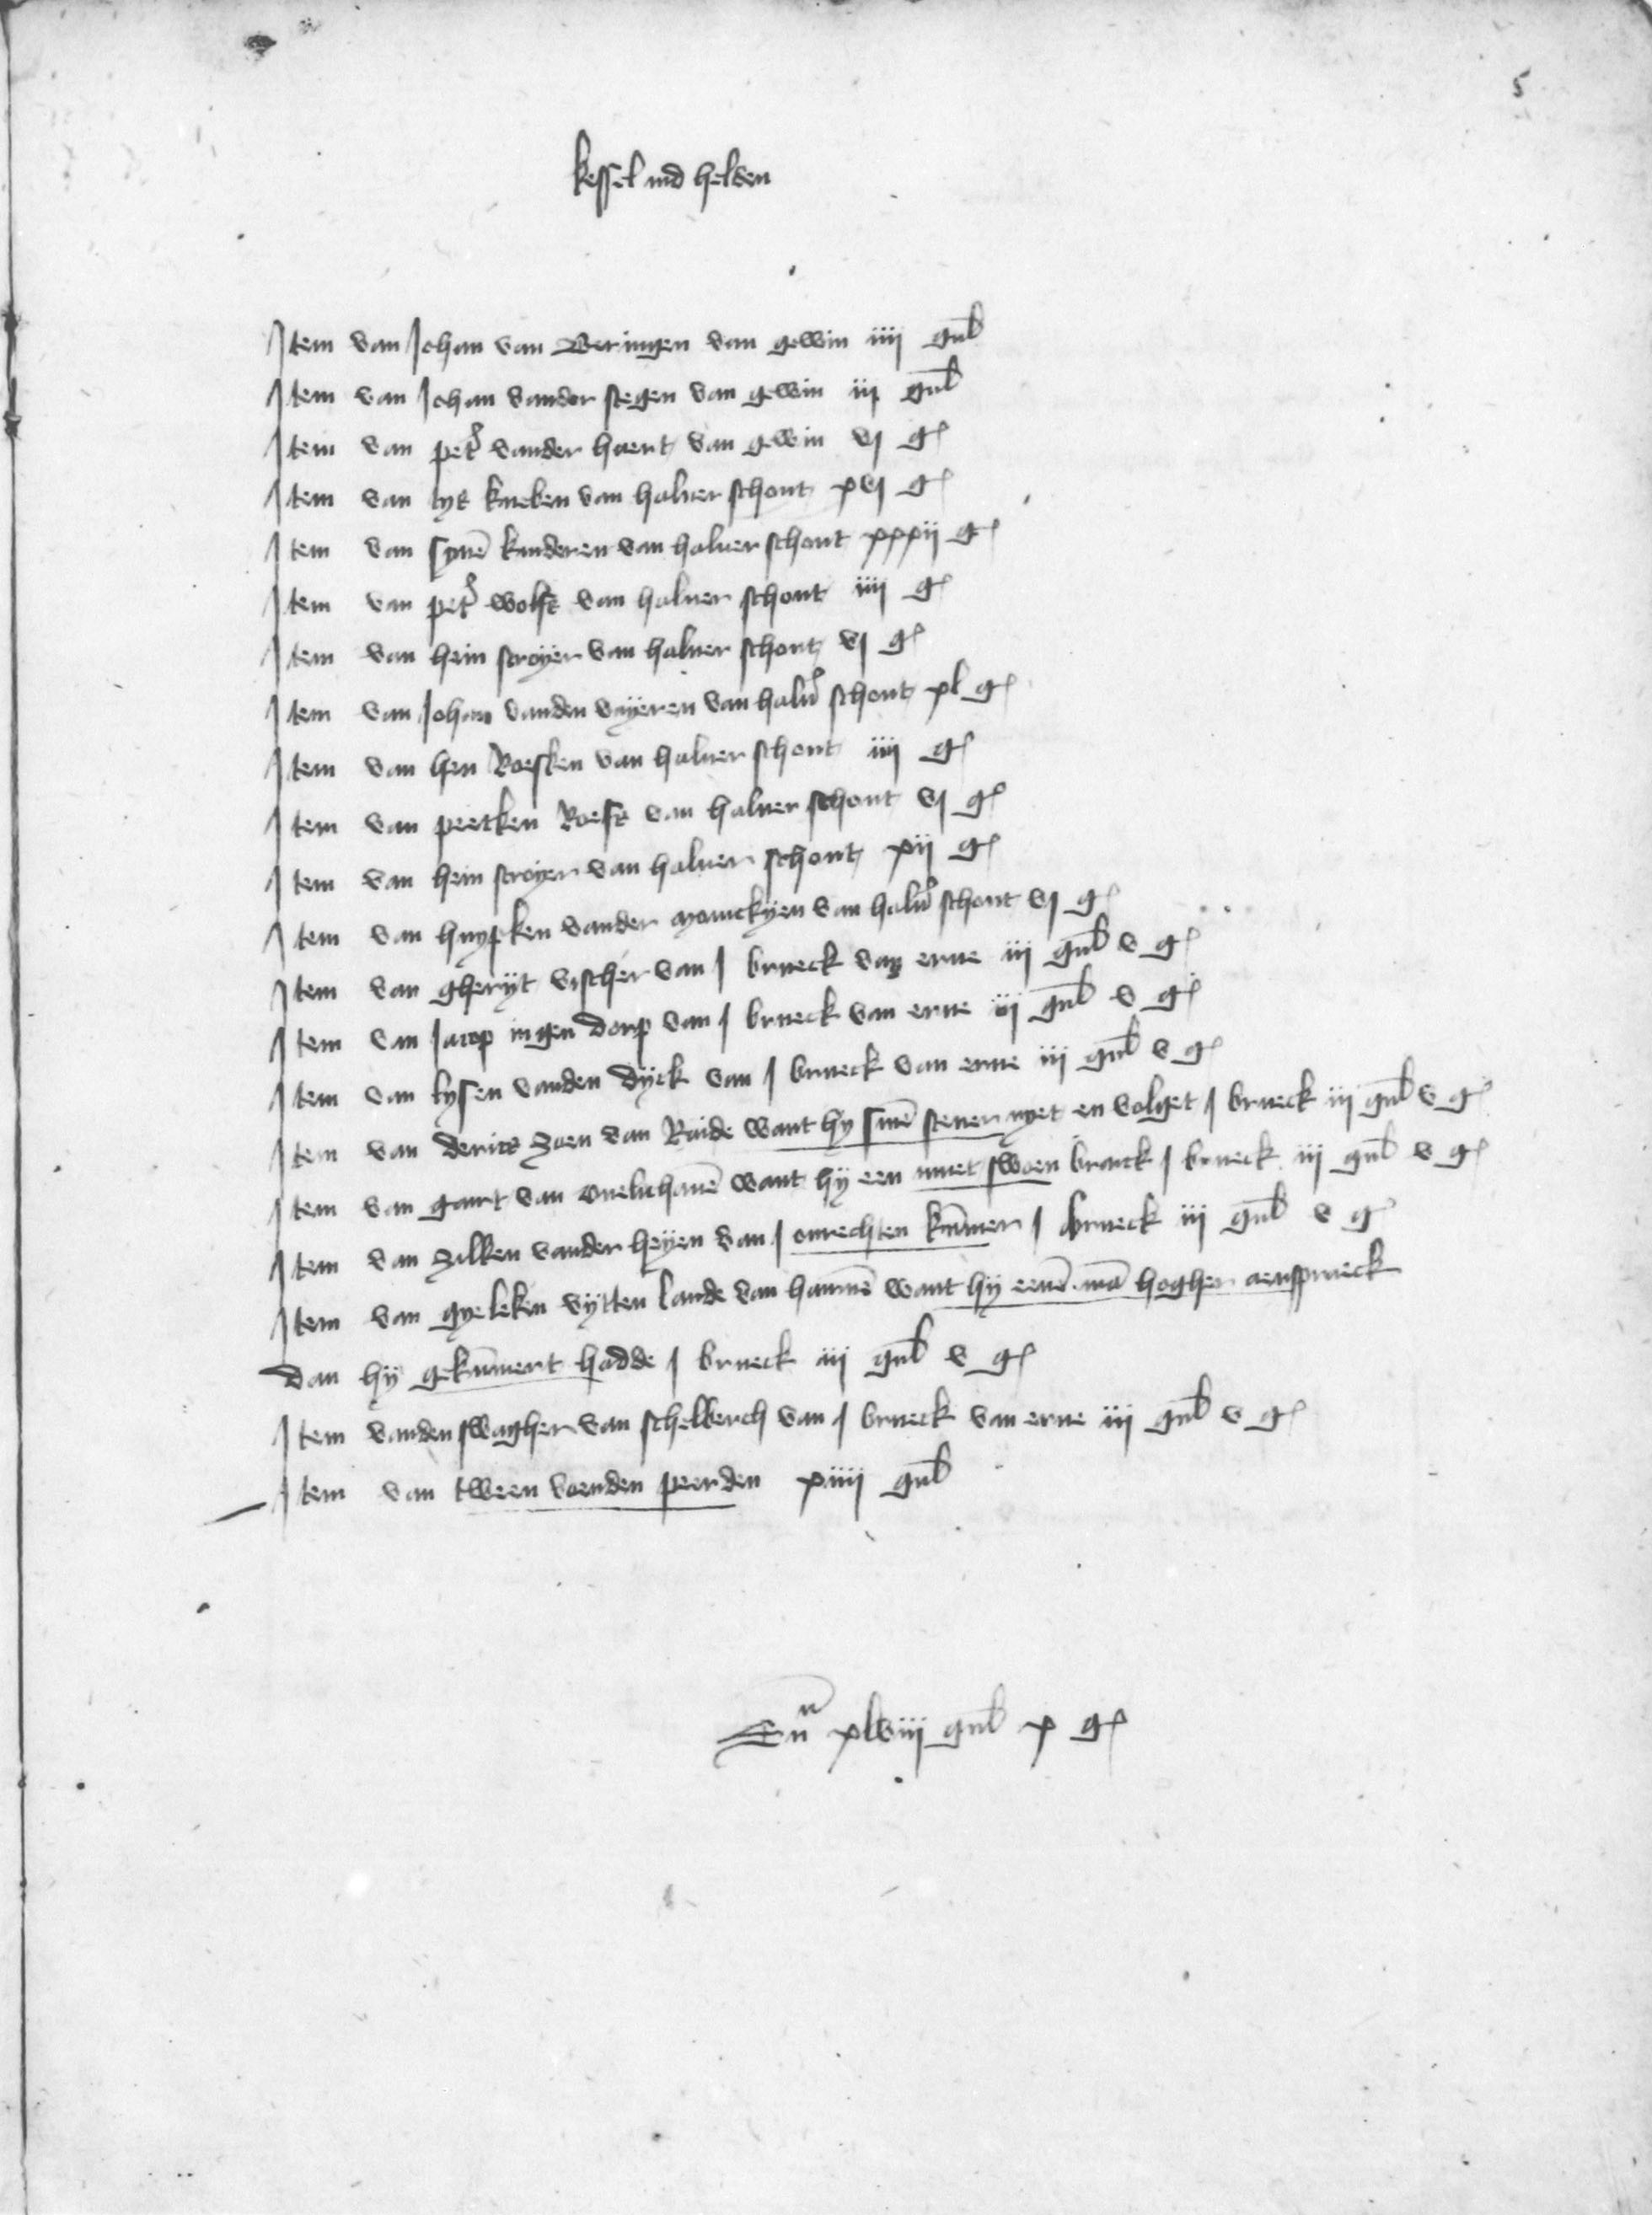 5
kessel ind helden
Item van Johan van Beringen van gewin iiij gul
Item van Johan vander stegen van gewin iij gul
Item van pet' vander haert van gewin vj g
Item van tys kneben van haluer schout xvj g
Item van synē kinderen van haluer schout xxxij g
Item van pet' wolfs van haluer schout iiij g
Item van hein scroyer van haluer schout vj g
Item van Johan vanden vyeren van halu' schout xl g
Item van hen Roefken van haluer schout iiij g
Item van peetken Roefs van haluer schout vj g
Item van hein scroyer van haluer schout xij g
Item van huypken vander monckyen van halu' schout vj g
Item van gheryt vischer van j brueck van erue iij gul v g
Item van Jacop ingen dorp van j brueck van erue iij gul v g
Item van lysen vanden dyck van j brueck van erue iij gul v g
Item van derics zoen van Raide want hy sinē steuer nyet en volget j brueck iij gul v g
Item van gaert van ouelichauē want hy een muet swoen braick j brueck iij gul v g
Item van zilken vander heyen van j onrechten kūmer j brueck iij gul v g
Item van gyeleken vytten lande van hamnē want hy eenē mā hogher aenspraeck
dan hy gekūmert hadde j brueck iij gul v g
Item vanden swagher van schelberch van j brueck van erue iij gul v g
Item van tween voenden peerden xiiij gul
Sūᵃ xlviij gul x g